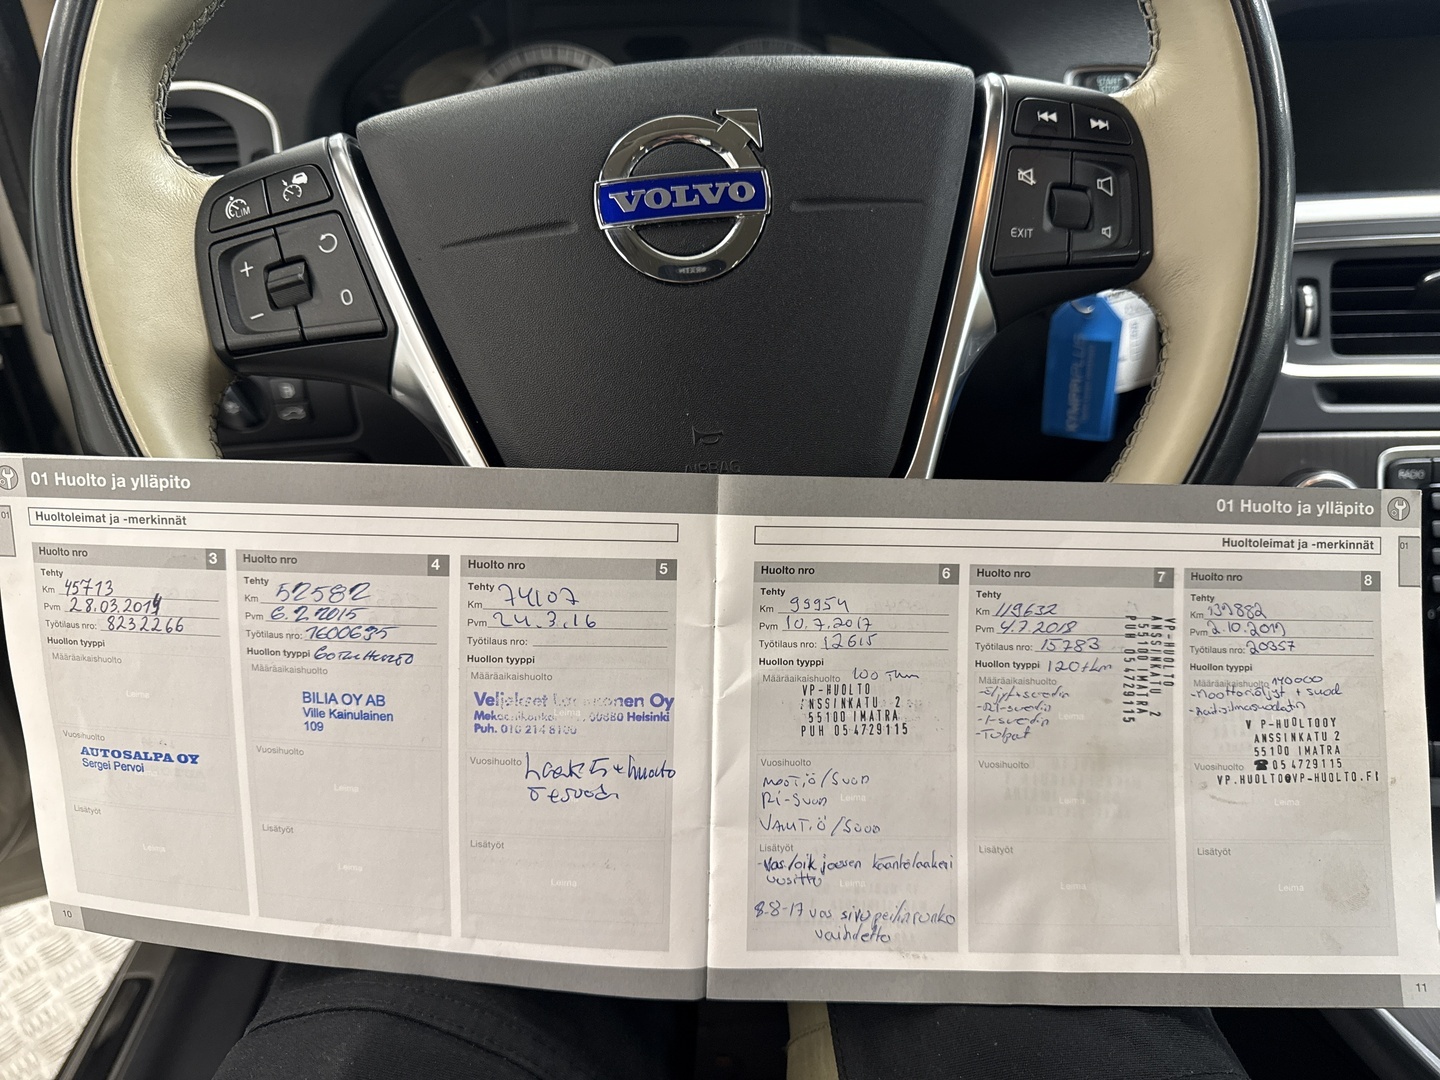 VOLVO
LIM
EXIT
AIRBAG
RADIO
01 Huolto ja ylläpito
01
Huoltoleimat ja -merkinnät
Huolto nro 3
Tehty
Km 45713
Pvm 28.03.2014
Työtilaus nro: 8232266
Huollon tyyppi
Määräaikaishuolto
Leima
Vuosihuolto
AUTOSALPA OY
Sergei Pervoi
Lisätyöt
Leima
10
Huolto nro 4
Tehty
Km 52582
Pvm 6.2.2015
Työtilaus nro: 1600635
Huollon tyyppi
Määräaikaishuolto
BILIA OY AB
Ville Kainulainen
109
Vuosihuolto
Leima
Lisätyöt
Leima
Huolto nro 5
Tehty
Km 74107
Pvm 24.3.16
Työtilaus nro:
Huollon tyyppi
Määräaikaishuolto
Veljekset Oy
00880 Helsinki
Puh. 010 214 8100
Vuosihuolto
huolto
Lisätyöt
Leima
01 Huolto ja ylläpito
01
Huoltoleimat ja -merkinnät
Huolto nro 6
Tehty
Km 99954
Pvm 10.7.2017
Työtilaus nro: 12615
Huollon tyyppi
Määräaikaishuolto 100 Tkm
VP-HUOLTO
ANSSINKATU 2
55100 IMATRA
PUH 05 4729115
Vuosihuolto
Moot.Ö/Suod
Ri-Suod
Vaiht.Ö/Suod
Leima
Lisätyöt
-Vas/oik jousen kääntölaakeri
uusittu
Leima
8-8-17 vas sivupeilin runko
vaihdettu
Huolto nro 7
Tehty
Km 119632
Pvm 4.7.2018
Työtilaus nro: 15783
Huollon tyyppi 120tkm
Määräaikaishuolto
-Öljyt+suodin
-Ri-suodin
-I-suodin
-Tulpat
Leima
VP-HUOLTO
ANSSINKATU 2
55100 IMATRA
PUH 05 4729115
Vuosihuolto
Lisätyöt
Leima
Huolto nro 8
Tehty
Km 139882
Pvm 2.10.2019
Työtilaus nro: 20357
Huollon tyyppi
Määräaikaishuolto 140000
-Moottoriöljyt + suod
-Raitisilmasuodatin
VP-HUOLTO OY
ANSSINKATU 2
55100 IMATRA
Vuosihuolto ☎ 05 4729115
VP.HUOLTO@VP-HUOLTO.FI
Leima
Lisätyöt
Leima
11